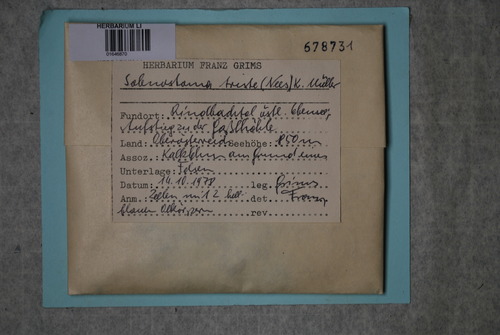 HERBARIUM LI
678731
HERBARIUM FRANZ GRIMS
Solenostoma triste (Nees) K. Müller
Fundort: Rindbachtal östl. Ebensee,
Aufstieg zu der Gaßlhöhle
Land: Oberösterreich Seehöhe: 850m
Assoz. Kalkfelsen am Grund eines
Unterlage:
Datum: 14.10.1978 leg. Grims
Anm. Zellen m 12 det. Franz
blauen Ölkörpern rev.